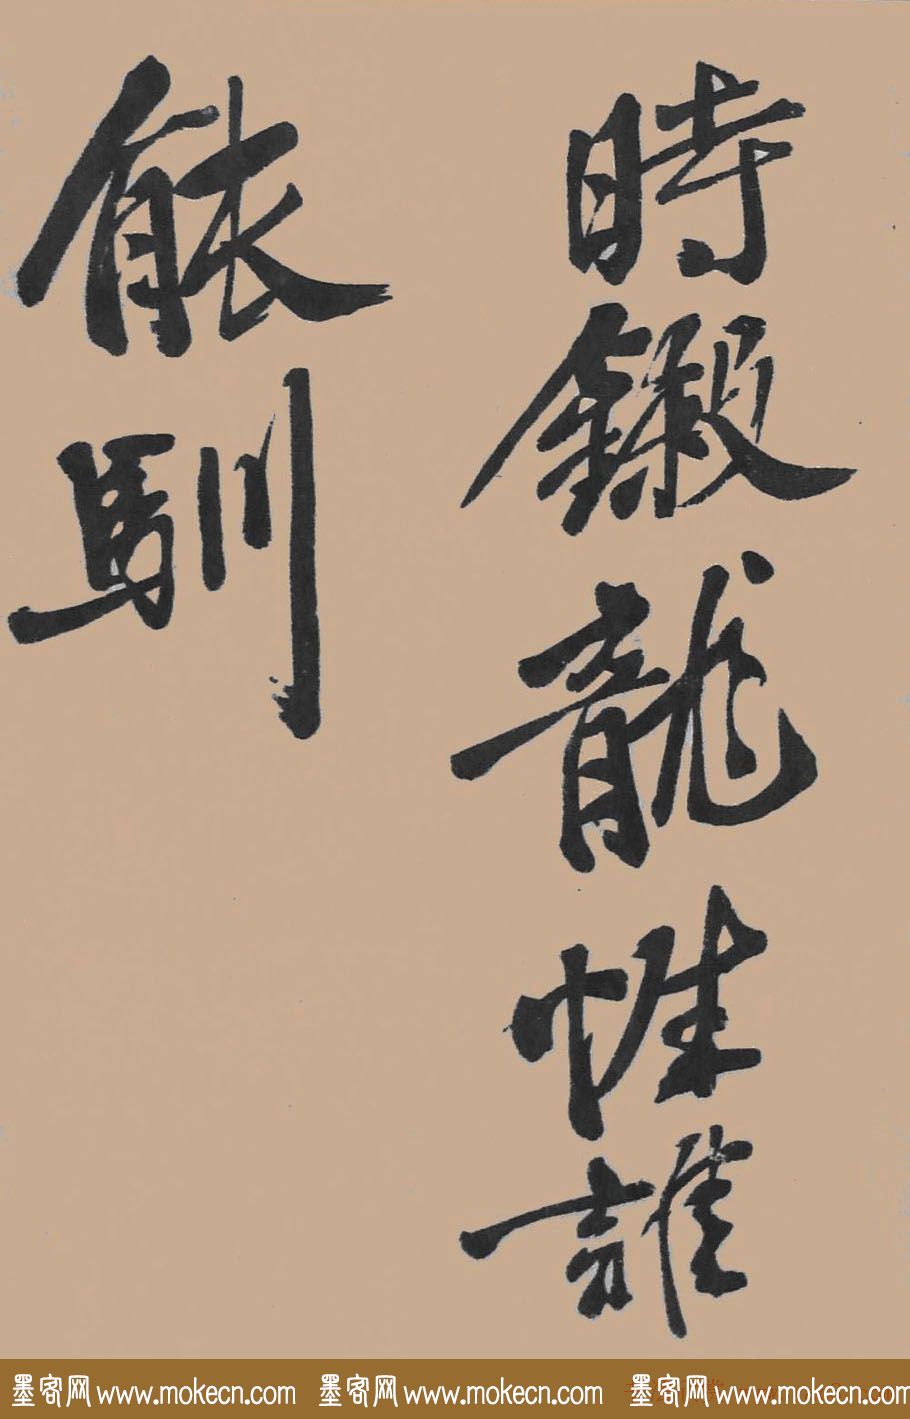 時鎩龍性誰
能馴
墨客网 www.mokecn.com 墨客网 www.mokecn.com 墨客网 www.mokecn.com